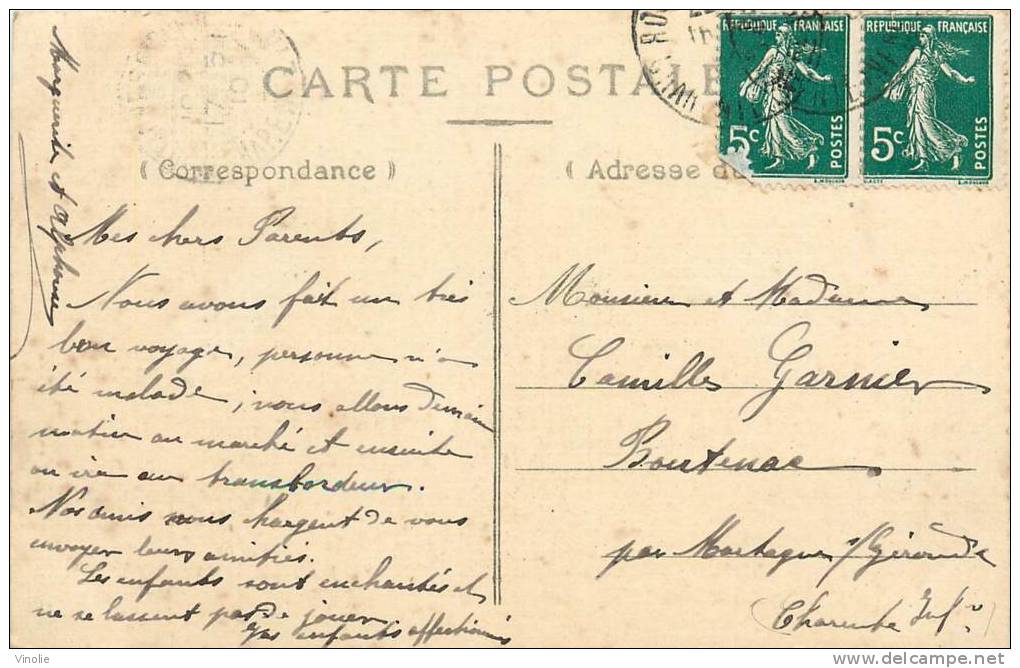 CARTE POSTALE
( Correspondance )
Mes chers Parents,
Nous avons fait un très
bon voyage, personne n'a
été malade, nous allons demain
matin au marché et ensuite
on ira au transbordeur.
Nos amis nous chargent de vous
envoyer leurs amitiés.
Les enfants sont enchantés et
ne se lassent pas de jouer
Vos enfants affectionnés
Marguerite et Alphonse
RÉPUBLIQUE FRANÇAISE
5c
POSTES
RÉPUBLIQUE FRANÇAISE
5c
POSTES
( Adresse du
Monsieur et Madame
Camille Garnier
Boutenac
par Mortagne s/Gironde
(Charente Infre)
© Vinolie
delcampe.net